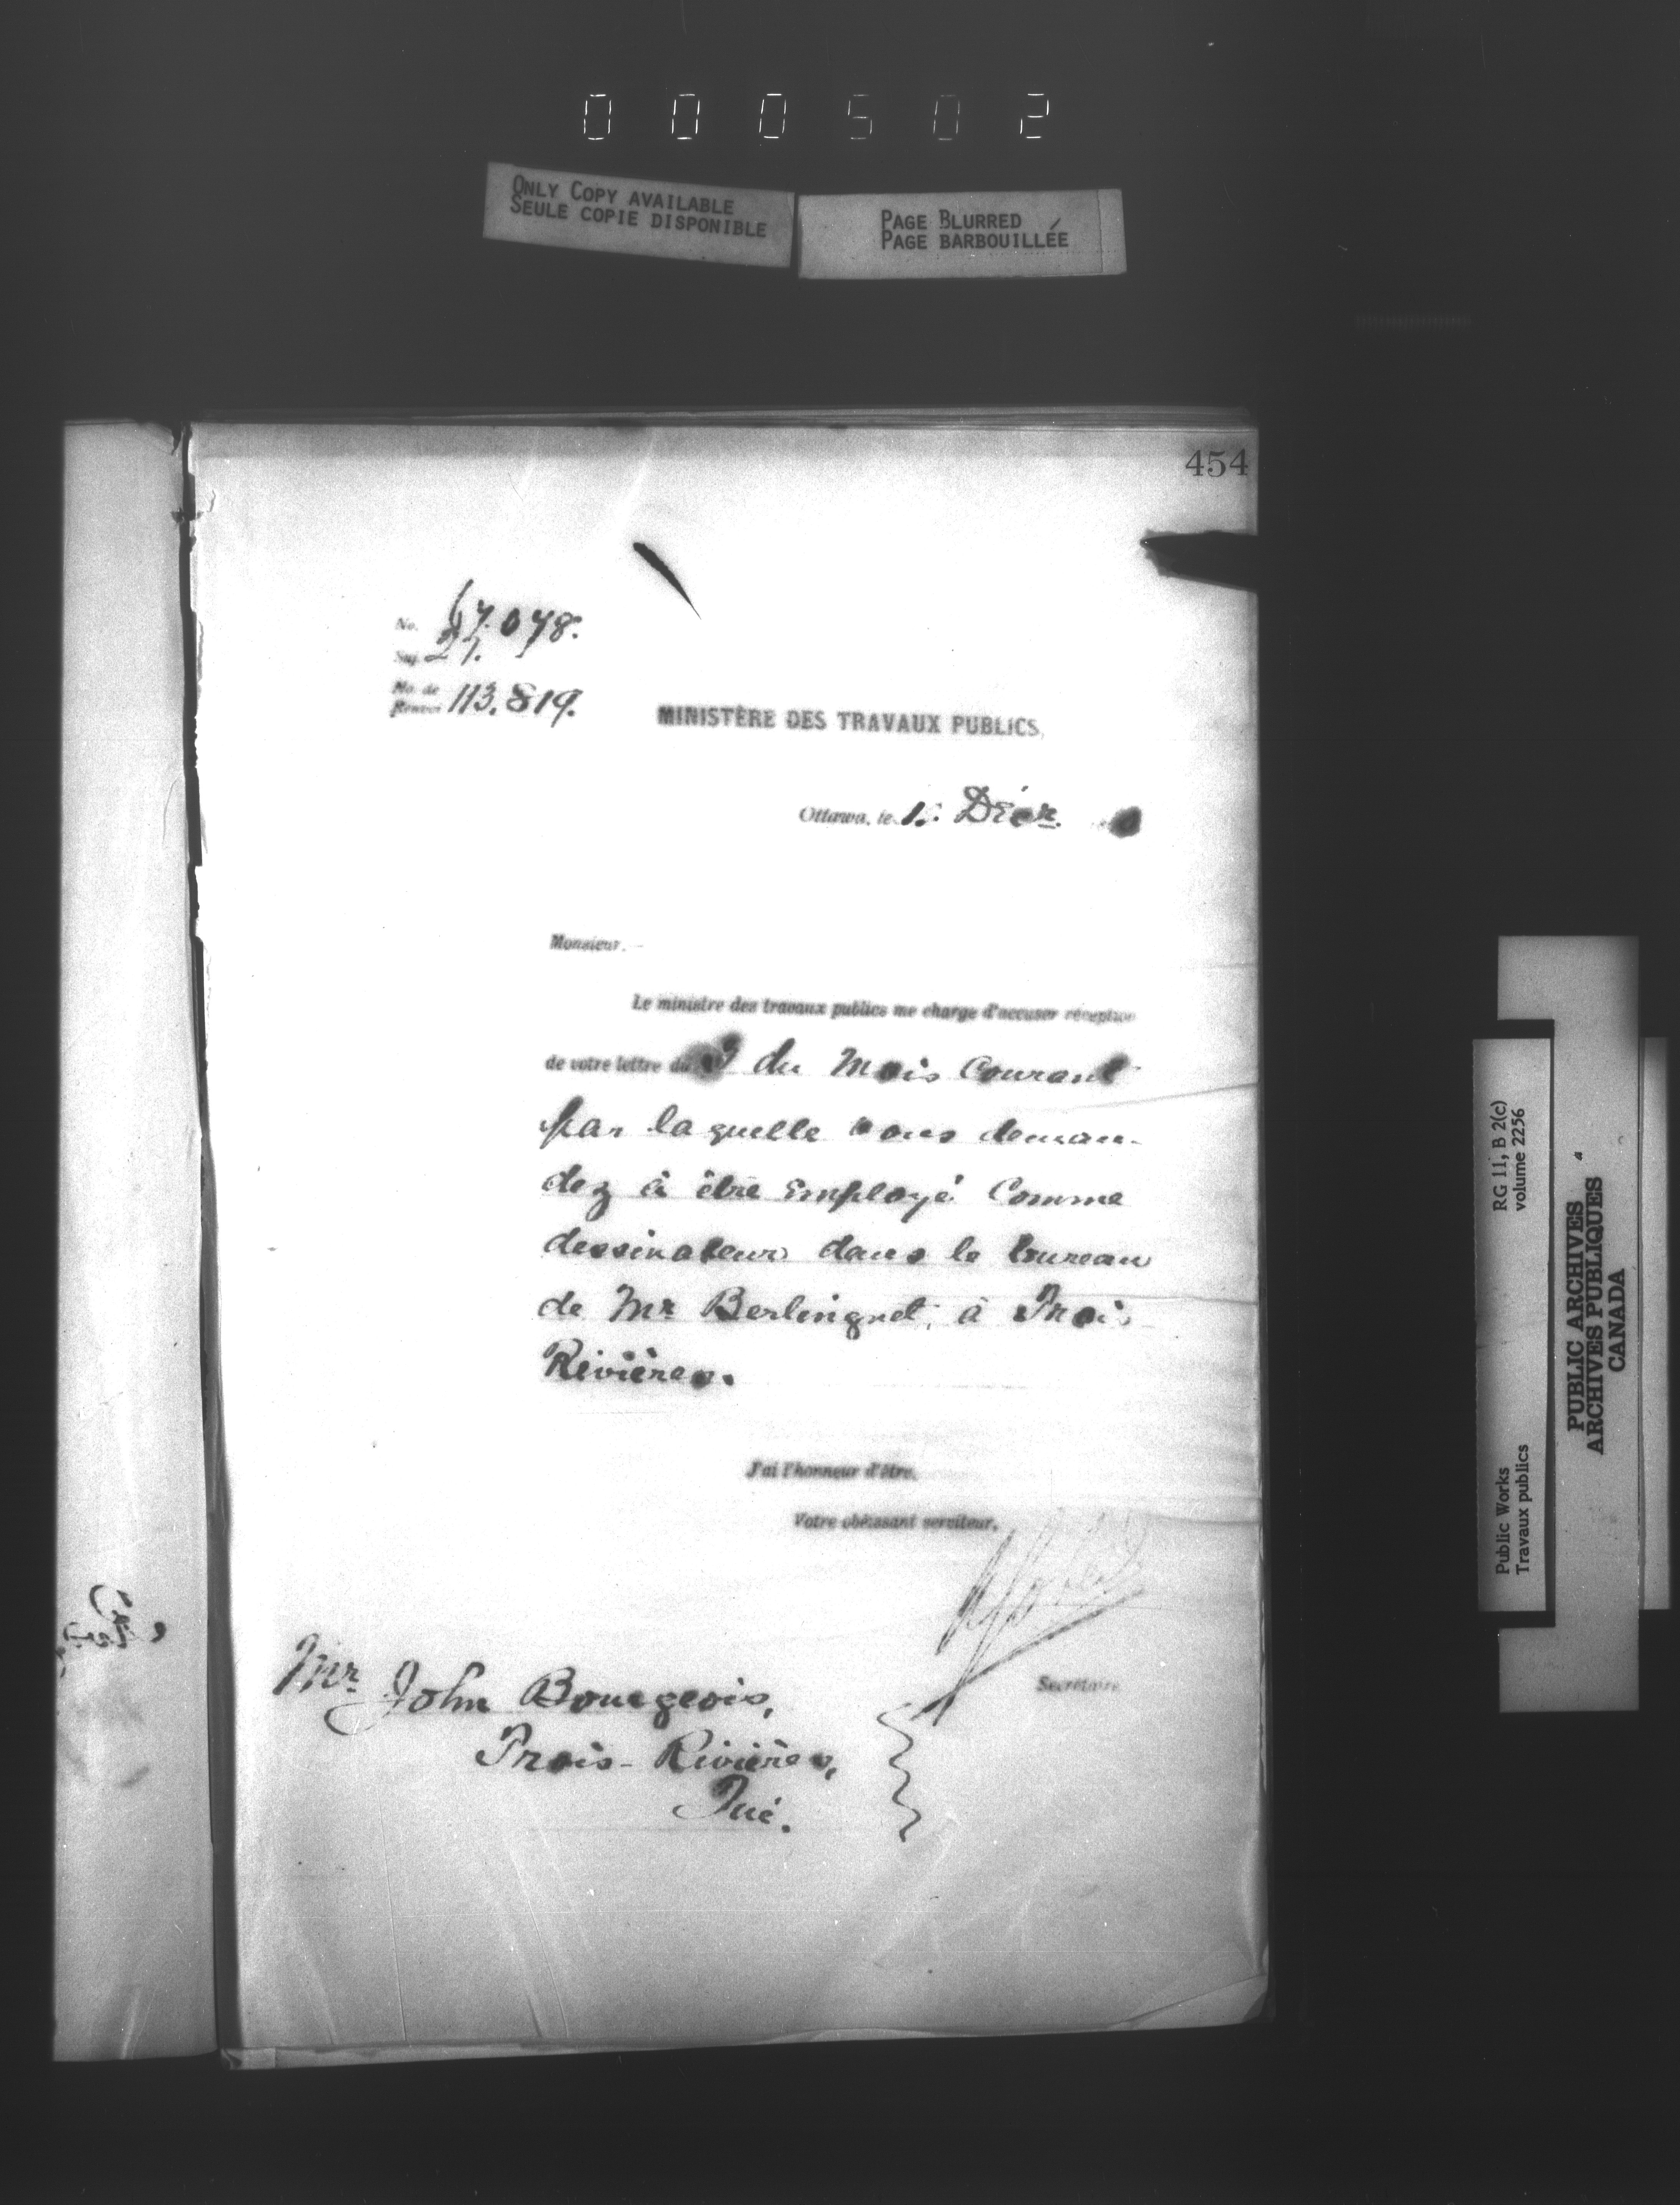 000502
ONLY COPY AVAILABLE
SEULE COPIE DISPONIBLE
PAGE BLURRED
PAGE BARBOUILLÉE
454
No. 67.078.
Suj. 21.
No. de
Renvoi 113.819.
MINISTÈRE DES TRAVAUX PUBLICS,
Ottawa, le Décr.
Monsieur,
Le ministre des travaux publics me charge d'accuser réception
de votre lettre du du Mois Courant
par laquelle vous deman-
dez à être employé Comme
dessinateur dans le bureau
de Mr Berlinguet, à Trois
Rivières.
J'ai l'honneur d'être,
Votre obéissant serviteur,
Secrétaire
Mr John Bourgeois,
Trois-Rivières,
Qué.
Public Works
Travaux publics
RG 11, B 2(c)
volume 2256
PUBLIC ARCHIVES
ARCHIVES PUBLIQUES
CANADA